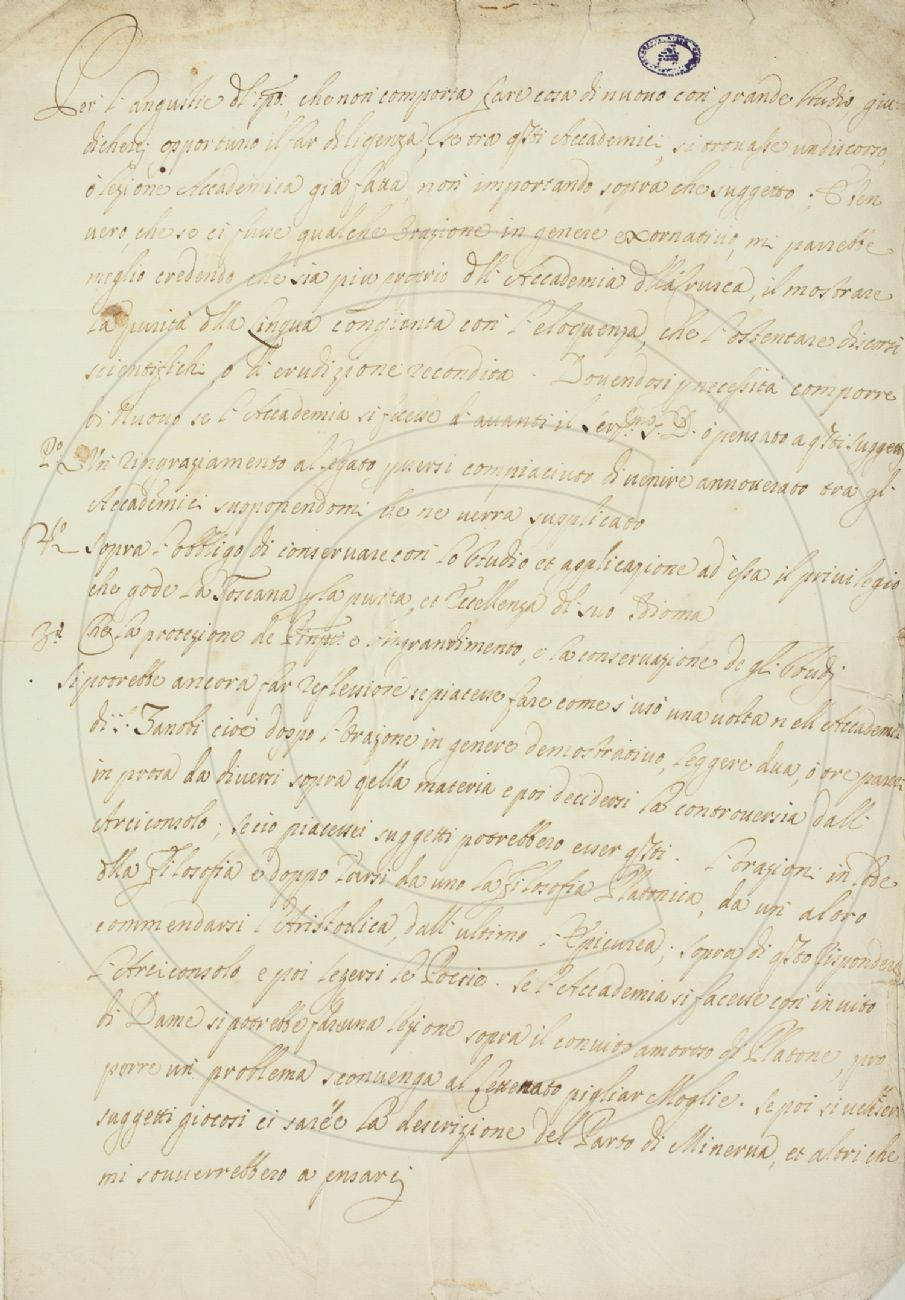 Per l'angustie dl' Tpo. che non comporta fare cosa di nuovo con grande studio, giu-
dicherej opportuno il far diligenza, se tra qsti Accademici, si trovasse un discorso,
ò lezione Accademica già fatta, non importando sopra che suggetto; È ben
vero, che se ci fusse qualche Orazione in genere exornativo, mi parrebbe
meglio credendo che sia piu proprio dll' Accademia dlla Crusca, il mostrare
la purità dlla Lingua congiunta con l'eloquenza, che l'ostentare discorsi
scientifichi, o di erudizione recondita. Dovendosi p necessità comporre
di nuovo se l'Accademia si facesse d'avanti il Sermo. S. D. ò pensato a qsti suggetti
Po Un ringraziamento al legato p versi compiaciuto di venire annoverato tra gl'
Accademici supponendomi che ne verrà supplicato
2o sopra l'obbligo di conservare con lo studio et applicazione ad essa il privilegio
che gode la Toscana p la purità, et Eccellenza dl suo Idioma
3o la protezione de e l'ingrandimento, e la conservazione de gli studj
Si potrebbe ancora far reflessione se piacesse fare come s'usò una volta nell' Accademia
di Zanobi cioè doppo l'Orazione in genere demostrativo, leggere dua, ò tre pareri
in prosa da diversi sopra qella materia e poi decidersi la controversia dall'
Arciconsolo; se ciò piacessei suggetti potrebbero esser qsti. l'orazioni in lode
dlla Filosofia e doppo lodarsi da uno la Filosofia Platonica, da un altro
commendarsi l'Aristotlica, dall' ultimo l'Epicurea; sopra di qsto rispondere
l'Arciconsolo e poi legersi le Poesie. Se l'Accademia si facesse con invito
di Dame si potrebbe far una lezione sopra il convito amoroso di Platone, pro
porre un problema se convenga al Letterato pigliar Moglie. Se poi si volesser
suggetti giocosi ci sarebe la descrizione del Parto di Minerva, et altri che
mi sovverrebbero a pensarej